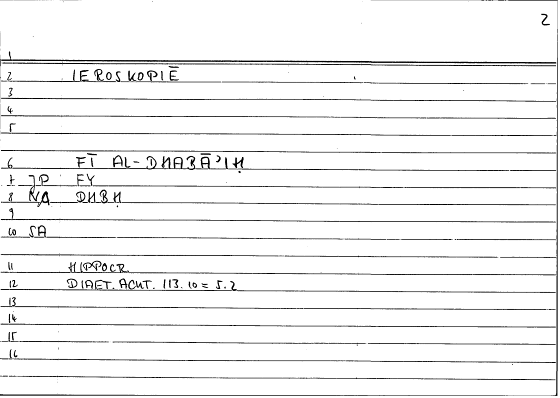 2
1
2 IEROSKOPIĒ
3
4
5
6 FĪ AL-DHABĀʾIḤ
7 JP FY
8 NA DHBḤ
9
10 SA
11 HIPPOCR.
12 DIAET. ACUT. 113.10 = 5.2
13
14
15
16